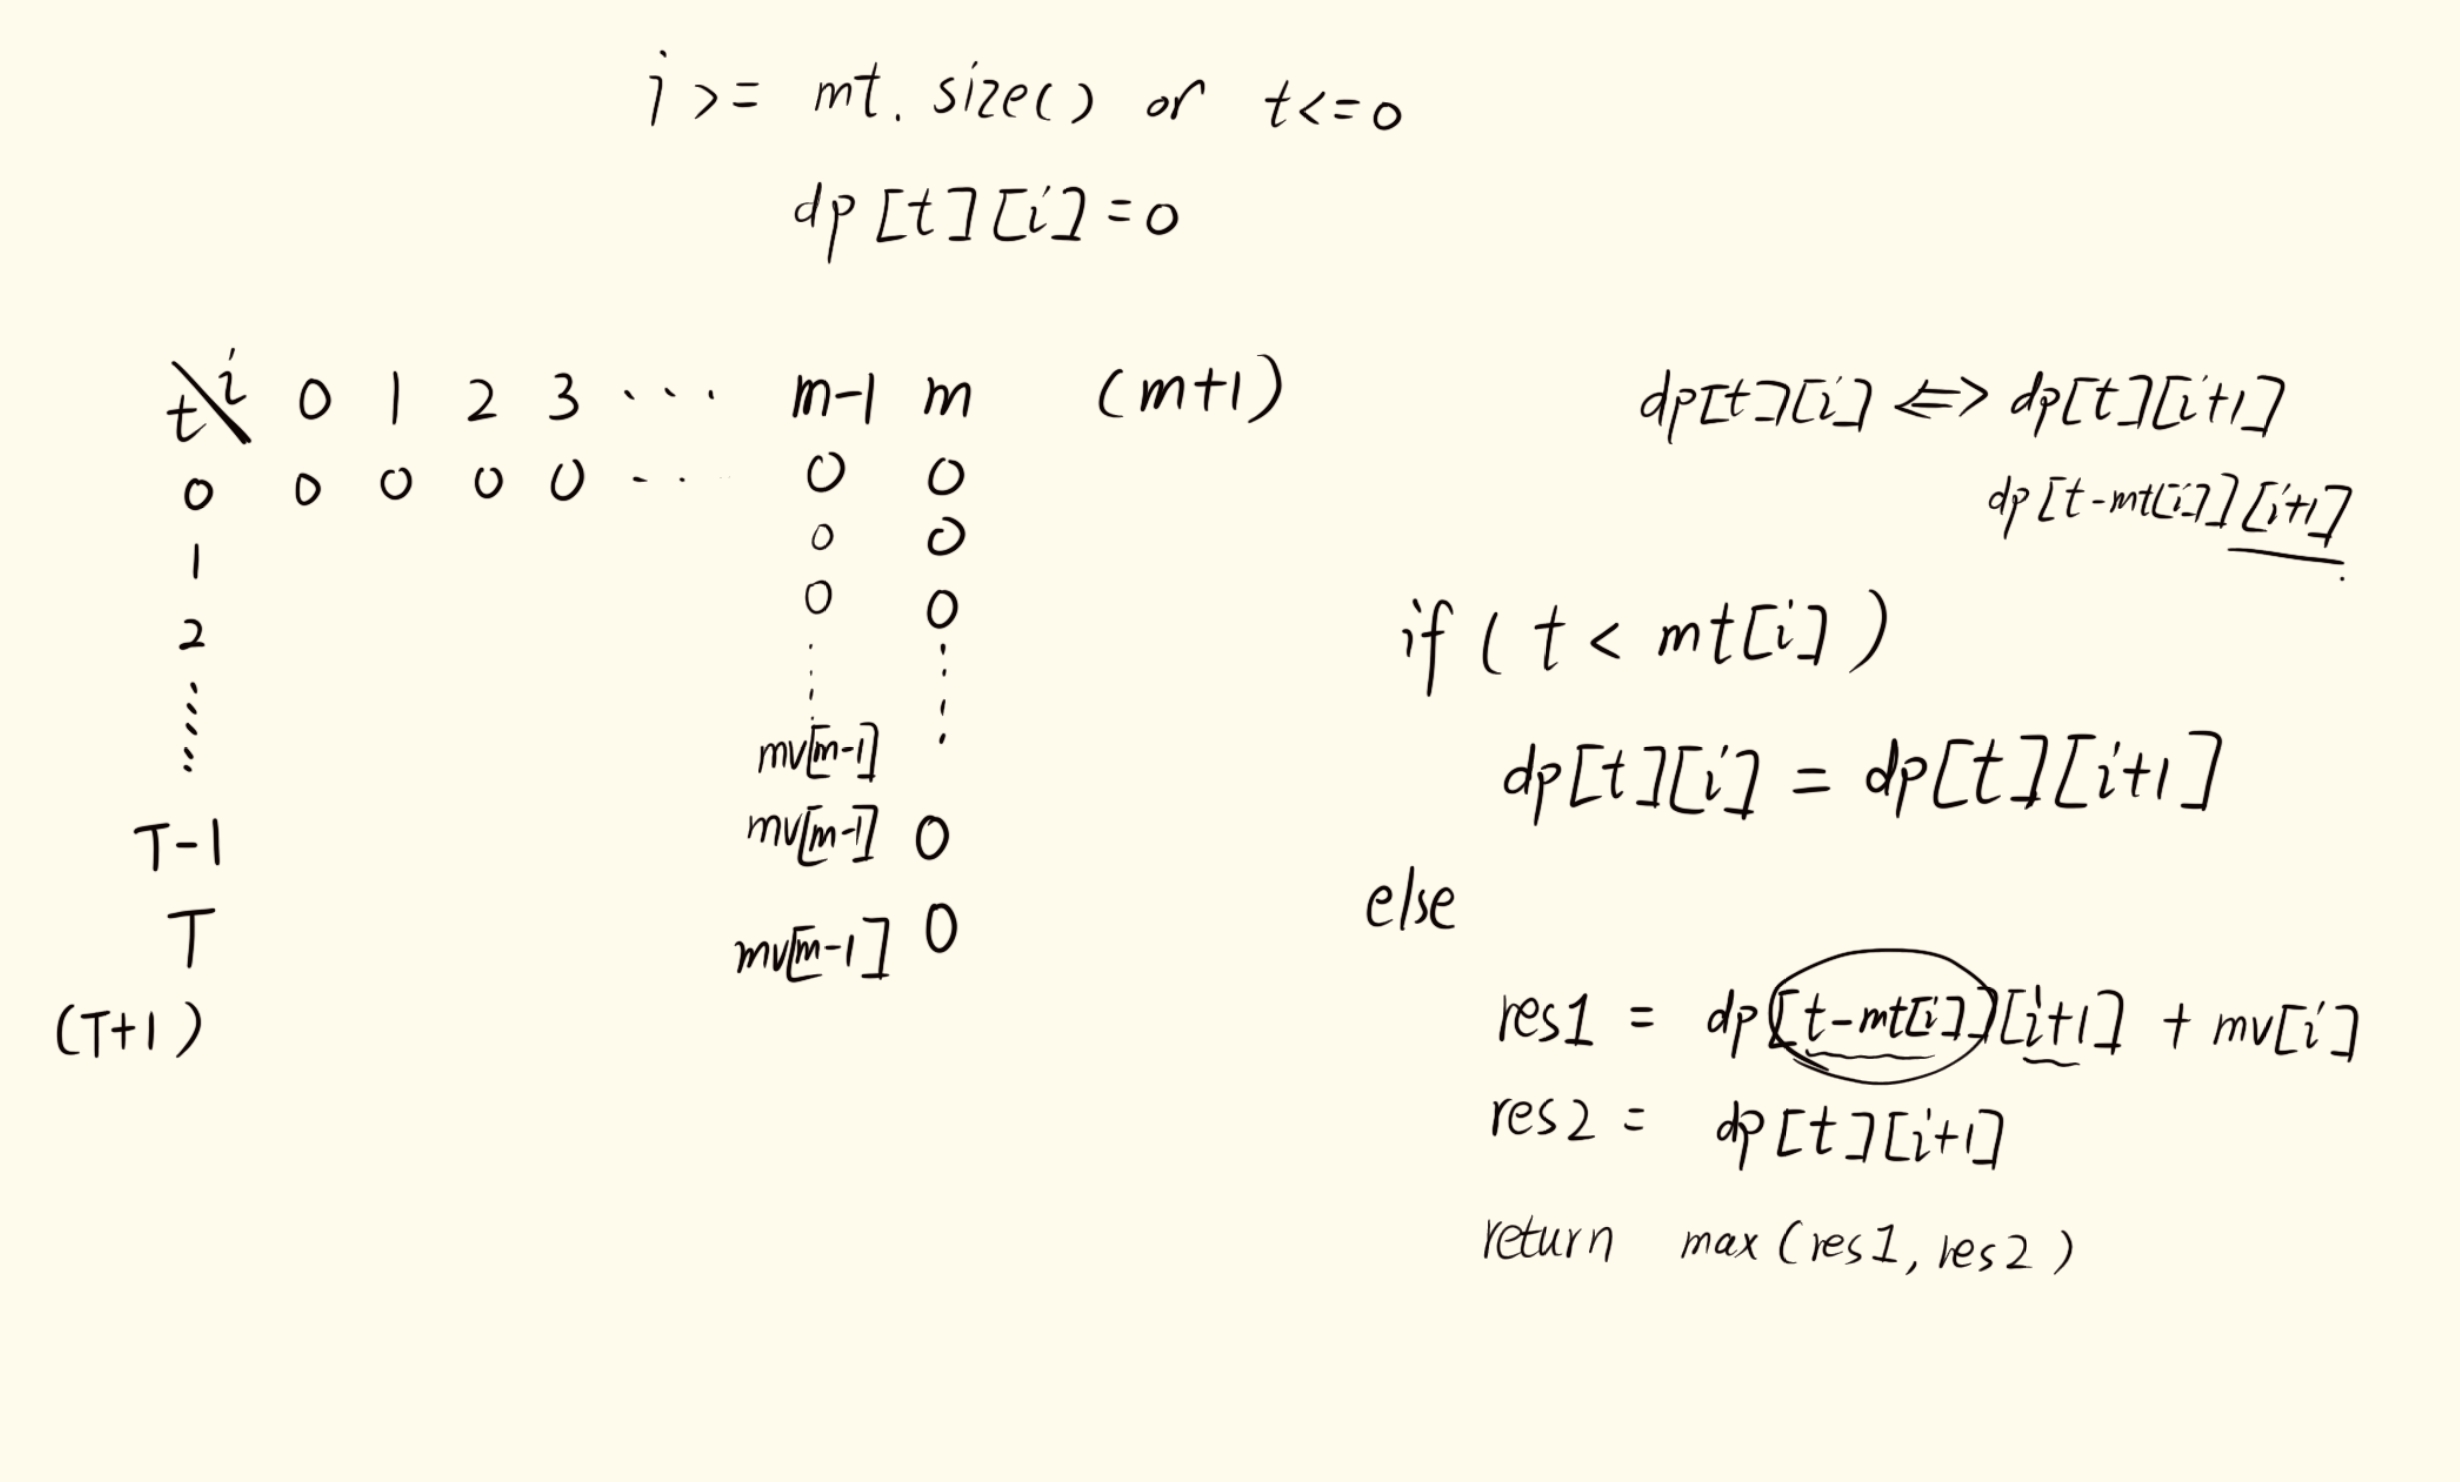 i >= mt. size() or t<=0
dp[t][i]=0
t\i 0 1 2 3 ... m-1 m (m+1)
0 0 0 0 0 ... 0 0
1 0 0
2 0 0
mv[m-1]
T-1 mv[m-1] 0
T mv[m-1] 0
(T+1)
dp[t][i] <=> dp[t][i+1]
dp[t-mt[i]][i+1]
if ( t < mt[i] )
dp[t][i] = dp[t][i+1]
else
res1 = dp[t-mt[i]][i+1] + mv[i]
res2 = dp[t][i+1]
return max(res1, res2)